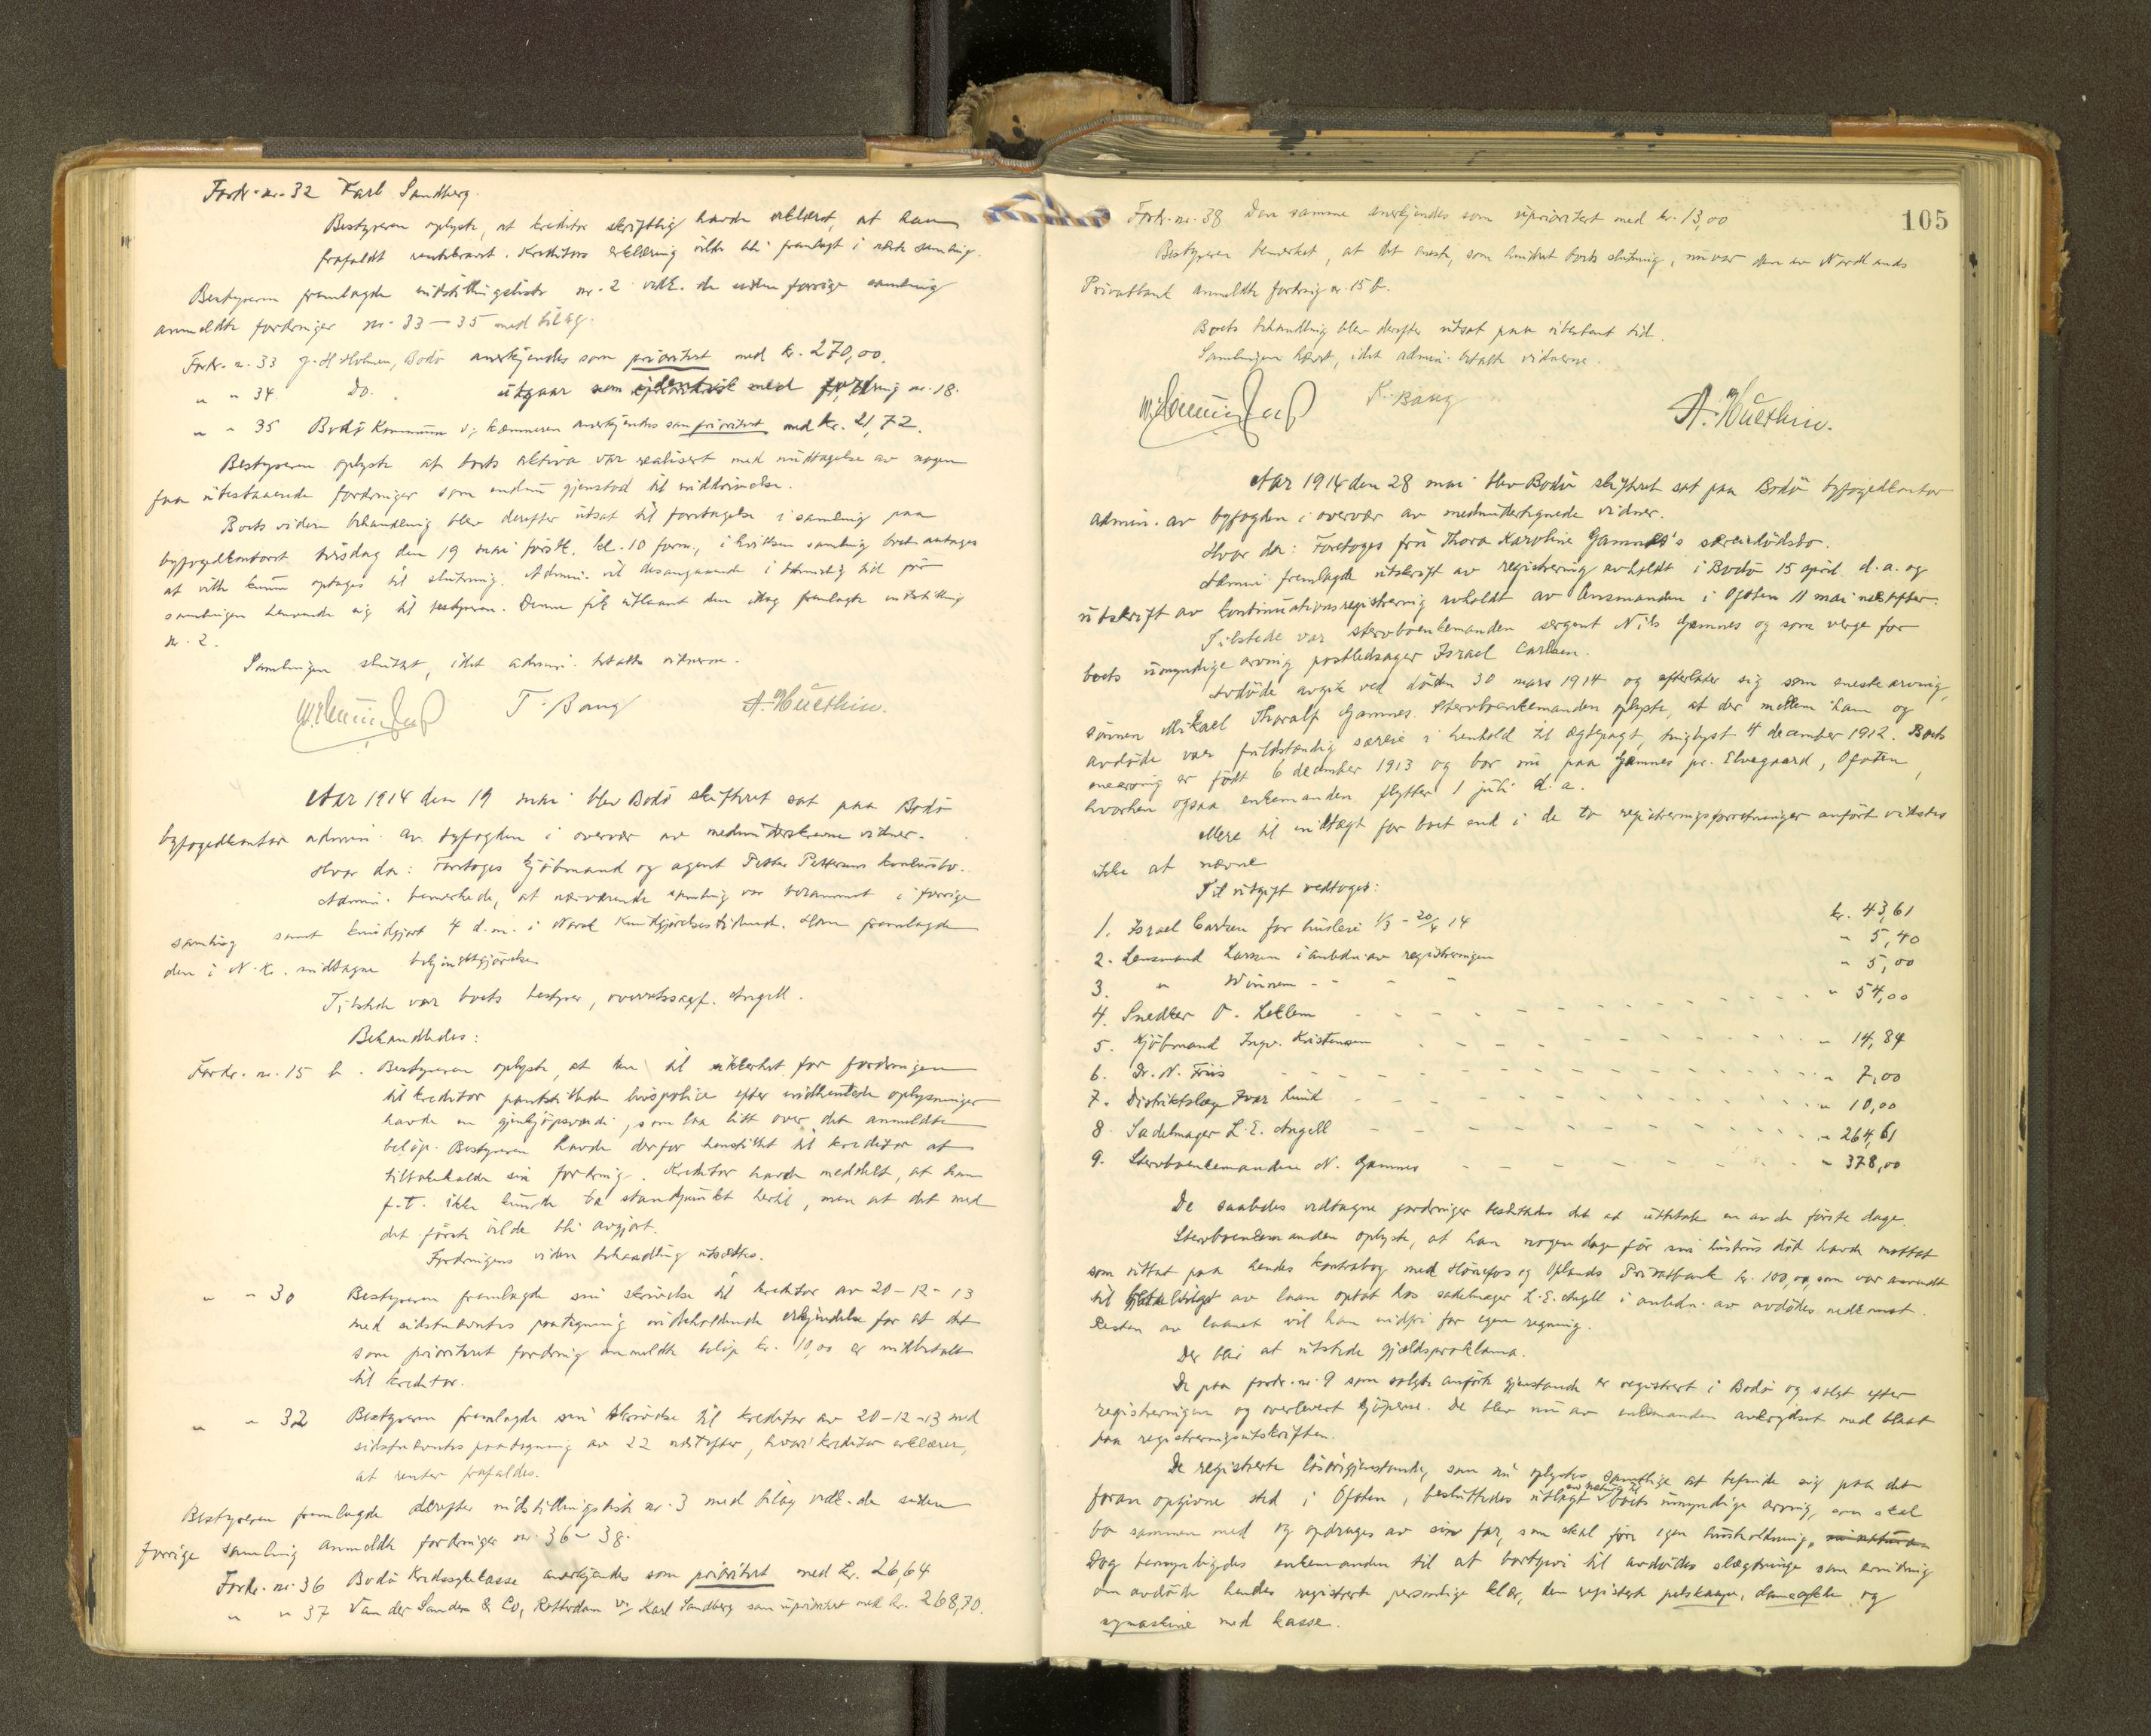 Fordr. nr. 32 Karl Sandberg.
Bestyreren oplyste, at kreditor skriftlig havde erklært, at han
frafaldt rentekravet. Kreditors erklæring vilde bli fremlagt i næste samling.
Bestyreren fremlagde indstillingsliste nr. 2 vedk. de siden forrige samling
anmeldte fordringer nr. 33–35 med bilag.
Fordr. nr. 33 J. H. Holmen, Bodö anerkjendes som prioritert med kr. 270,00.
" " 34 do. utgaar som identisk med fordring nr. 18.
" " 35 Bodö Kommune v/ kæmneren anerkjendes som prioritert med kr. 21,72.
Bestyreren oplyste at boets aktiva var realisert med undtagelse av nogen
faa utestaaende fordringer som endnu gjenstod til inddrivelse.
Boets videre behandling blev derefter utsat til foretagelse i samling paa
byfogedkontoret tirsdag den 19 mai förstk. kl. 10 form., i hvilken samling boet antages
at ville kunne optages til slutning. Admin. vil desangaaende i betimelig tid för
samlingen henvende sig til bestyreren. Denne fik utlaant den idag fremlagte indstilling
nr. 2.
Samlingen sluttet, idet admin. betalte vidnerne.
T. Bang A. Huethin.
Aar 1914 den 19 mai blev Bodö skifteret sat paa Bodö
byfogedkontor admin. av byfogden i overvær av medunderskrevne vidner.
Hvor da: Foretoges kjöbmand og agent Petter Pettersens konkursbo.
Admin. bemerkede, at nærværende samling var berammet i forrige
samling samt kundgjort 4 d.m. i Norsk Kundgjörelsestidende. Han fremlagde
den i N. K. indtagne bekjendtgjörelse.
Tilstede var boets bestyrer, overretssagf. Angell.
Behandledes:
Fordr. nr. 15 b. Bestyreren oplyste, at den til sikkerhet for fordringen
til kreditor pantstillede livspolice efter indhentede oplysninger
havde en gjenkjöpsværdi, som laa litt over det anmeldte
belöp. Bestyreren havde derfor henstillet til kreditor at
tilbakekalde sin fordring. Kreditor havde meddelt, at han
f.t. ikke kunde ta standpunkt hertil, men at det med
det förste vilde bli avgjort.
Fordringens videre behandling utsættes.
" " 30 Bestyreren fremlagde sin skrivelse til kreditor av 20-12-13
med sidstnævntes paategning indeholdende erkjendelse for at det
som prioritert fordring anmeldte belöp kr. 10,00 er indbetalt
til kreditor.
" " 32 Bestyreren fremlagde sin skrivelse til kreditor av 20-12-13 med
sidstnævntes paategning av 22 næstefter, hvori kreditor erklærer,
at renter frafaldes.
Bestyreren fremlagde derefter indstillingsliste nr. 3 med bilag vedk. de siden
forrige samling anmeldte fordringer nr. 36–38.
Fordr. nr. 36 Bodö Kredssykekasse anerkjendes som prioritert med kr. 26,64
" " 37 Van der Sanden & Co, Rotterdam v/ Karl Sandberg som uprioritert med kr. 268,70.
105
Fordr. nr. 38 Den samme anerkjendes som uprioritert med kr. 13,00
Bestyreren bemerket, at det eneste, som hindret boets slutning, nu var den av Nordlands
Privatbank anmeldte fordring nr. 15 b.
Boets behandling blev derefter utsat paa ubestemt tid.
Samlingen hævet, idet admin. betalte vidnerne.
T. Bang A. Huethin.
Aar 1914 den 28 mai blev Bodö skifteret sat paa Bodö byfogedkontor
admin. av byfogden i overvær av medundertegnede vidner.
Hvor da: Foretoges fru Thora Karoline Gamnes's særeiedödsbo.
Admin. fremlagde utskrift av registrering avholdt i Bodö 15 april d.a. og
utskrift av kontinuationsregistrering avholdt av lensmanden i Ofoten 11 mai næstefter.
Tilstede var stervboenkemanden sergent Nils Gamnes og som verge for
boets umyndige arving postledsager Israel Carlsen.
Avdöde avgik ved döden 30 mars 1914 og efterlater sig som eneste arving,
sönnen Mikael Thoralf Gamnes. Stervboenkemanden oplyste, at der mellem ham og
avdöde var fuldstændig særeie i henhold til ægtepagt, tinglyst 4 december 1912. Boets
enearving er födt 6 december 1913 og bor nu paa Gamnes pr. Elvegaard, Ofoten,
hvorhen ogsaa enkemanden flytter 1 juli d.a.
Mere til indtægt for boet end i de to registreringsforretninger anfört vidstes
ikke at nævne
Til utgift vedtoges:
1. Israel Carlsen for husleie 1/3 - 20/4 14 kr. 43,61
2. Lensmand Larsen i anledn. av registreringen " 5,40
3. " Winnem - - - - " 5,00
4. Snedker O. Leklem - - - - " 54,00
5. Kjöbmand Ingv. Kristensen - - - - " 14,84
6. Dr. N. Friis - - - - " 7,00
7. Distriktslæge Ivar Lund - - - - " 10,00
8. Sadelmager L. E. Angell - - - - " 264,61
9. Stervboenkemanden N. Gamnes - - - - " 378,00
De saaledes vedtagne fordringer besluttedes det at utbetale en av de förste dage.
Stervboenkemanden oplyste, at han nogen dage för sin hustrus död havde mottat
som uttat paa hendes kontrabog med Hönefos og Oplands Privatbank kr. 100,00, som var anvendt
til av laan optat hos sadelmager L. E. Angell i anledn. av avdödes nedkomst.
Resten av laanet vil han indfri for egen regning.
Der blir at utstede gjældsproklama.
De paa fordr. nr. 9 som solgte anförte gjenstande er registrert i Bodö og solgt efter
registreringen og overlevert kjöperne. De blev nu av enkemanden avkrydset med blaat
paa registreringsutskriften.
De registrerte lösöregjenstande, som nu oplystes samtlige at befinde sig paa det
foran opgivne sted i Ofoten, besluttedes utlagt in natura til boets umyndige arving, som skal
bo sammen med og opdrages av sin far, som skal före egen husholdning,
Dog bemyndigedes enkemanden til at bortgive til avdödes slægtninge som erindring
om avdöde hendes registrerte personlige klær, den registrerte pelskaape, og
symaskine med kasse.